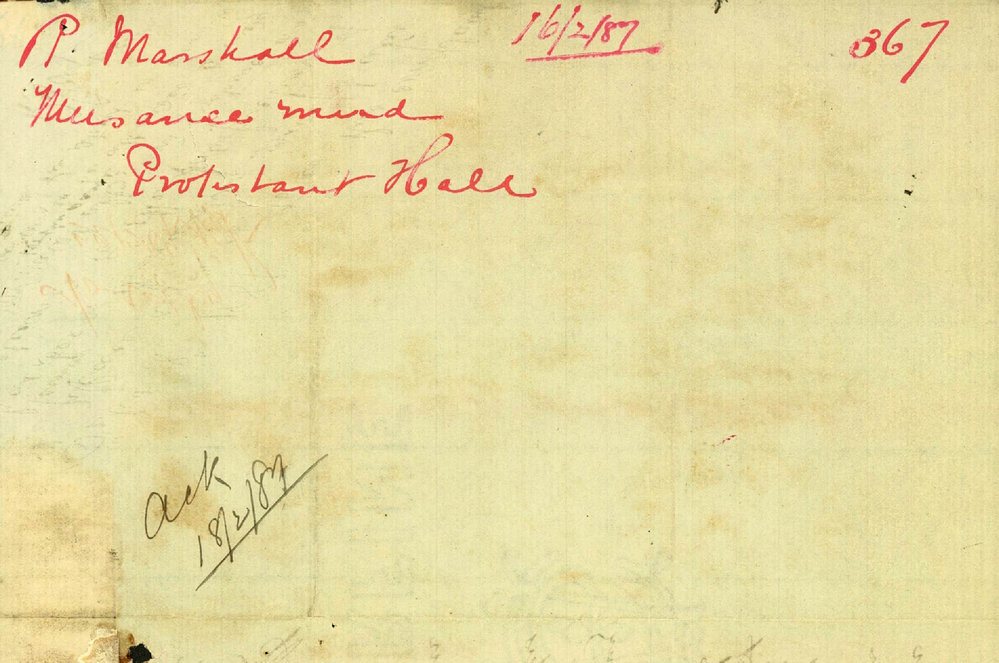 R. Marshall 16/2/87 367
Nuisance near
Protestant Hall
ack
18/2/87